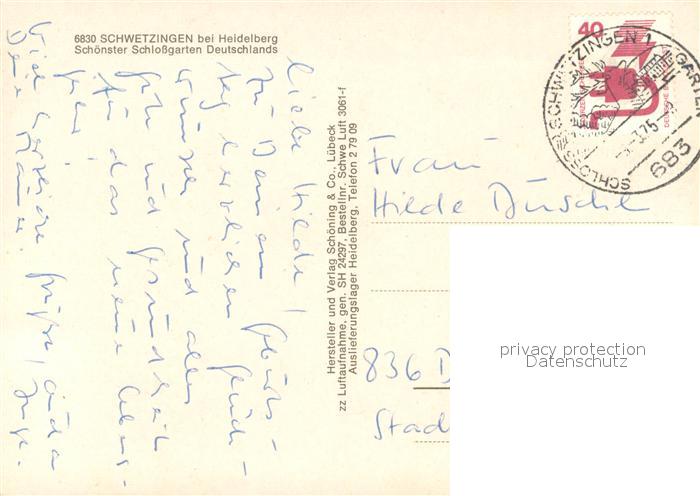 6830 SCHWETZINGEN bei Heidelberg
Schönster Schloßgarten Deutschlands
Liebe Hilde,
zu Deinem Geburts-
tag herzlichen Glück-
wunsch und alles
Gute und Gesundheit
für das neue Lebens-
jahr!
Viele herzliche Grüße,
Deine
Hersteller und Verlag Schöning & Co., Lübeck
zz Luftaufnahme, gen. SH 24297, Bestellnr. Schwe Luft 3061-f
Auslieferungslager Heidelberg, Telefon 2 79 09
40
SCHWETZINGEN 1
SCHLOSS
GARTEN
75
683
Frau
Hilde
836 D
Stad
privacy protection
Datenschutz